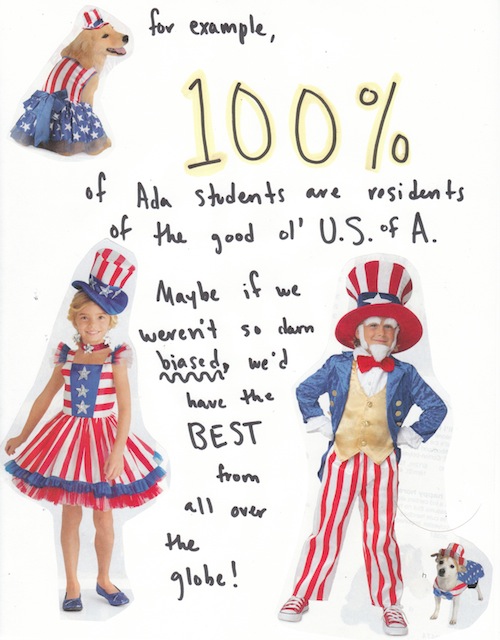 for example,
100%
of Ada students are residents
of the good ol' U.S. of A.
Maybe if we
weren't so darn
biased, we'd
have the
BEST
from
all over
the
globe!